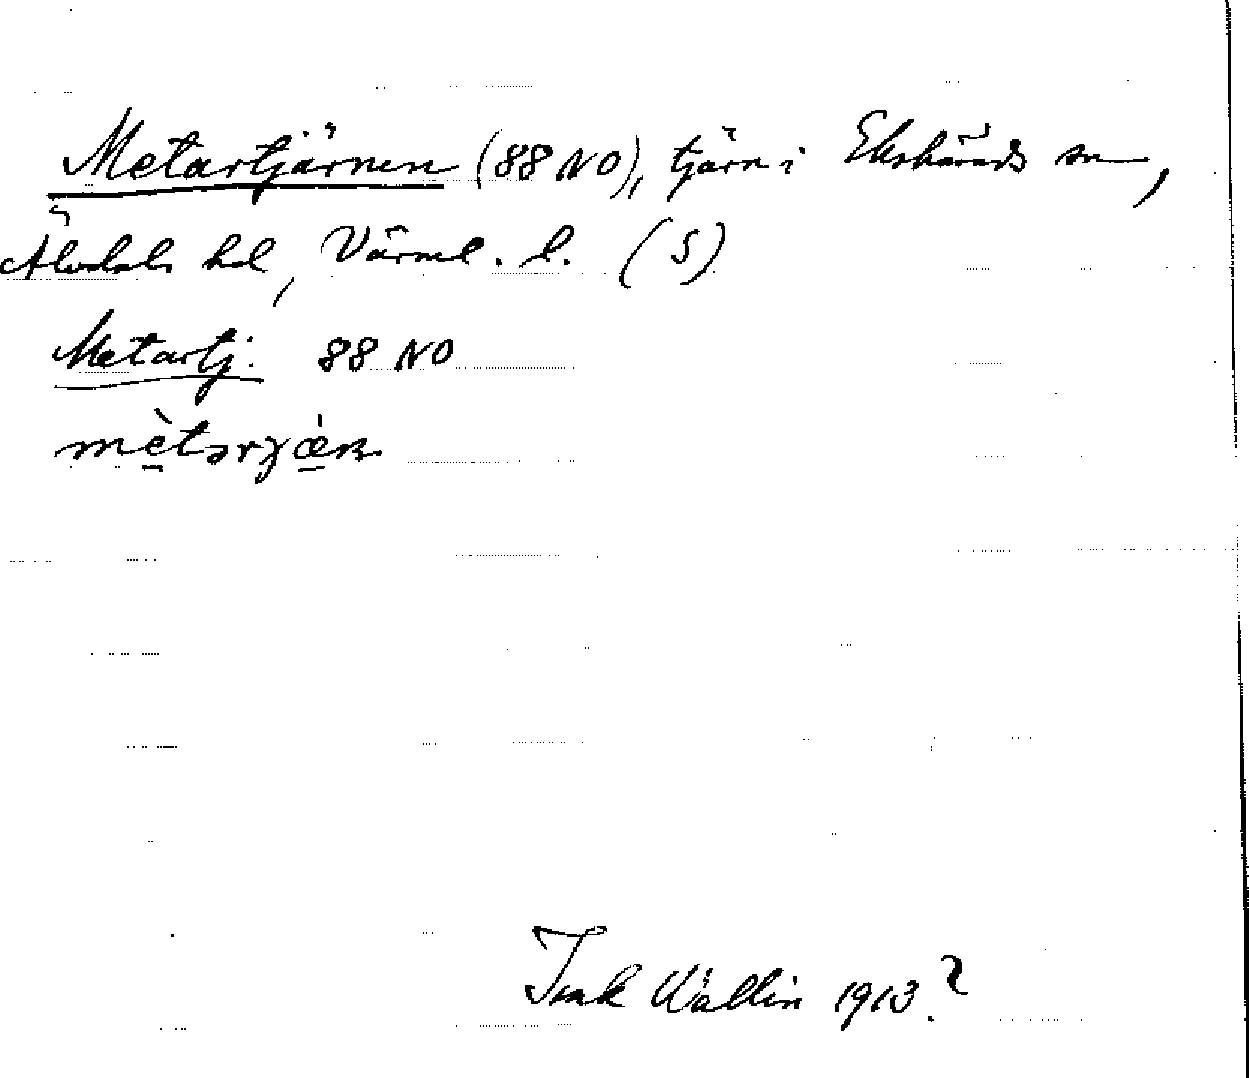 Metartjärnen (88 NO), tjärn i Ekshärads sn,
Älvdals hd, Värml. l. (S)
Metartj. 88 NO
mètərʒæ̀n
Isak Wallin 1913?